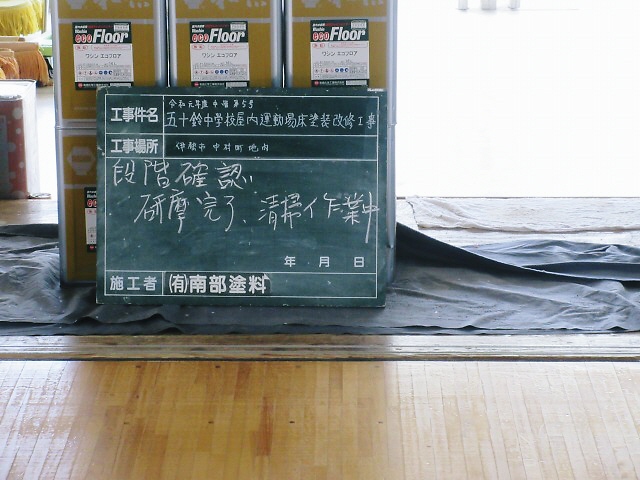 Washin
eco Floor
ワシン エコフロア
Washin
eco Floor
ワシン エコフロア
Washin
eco Floor
ワシン エコフロア
工事件名
令和元年度 中営第5号
五十鈴中学校屋内運動場床塗装改修工事
工事場所
伊勢市 中村町 地内
段階確認
研摩完了、清掃作業中
年 月 日
施工者
(有)南部塗料